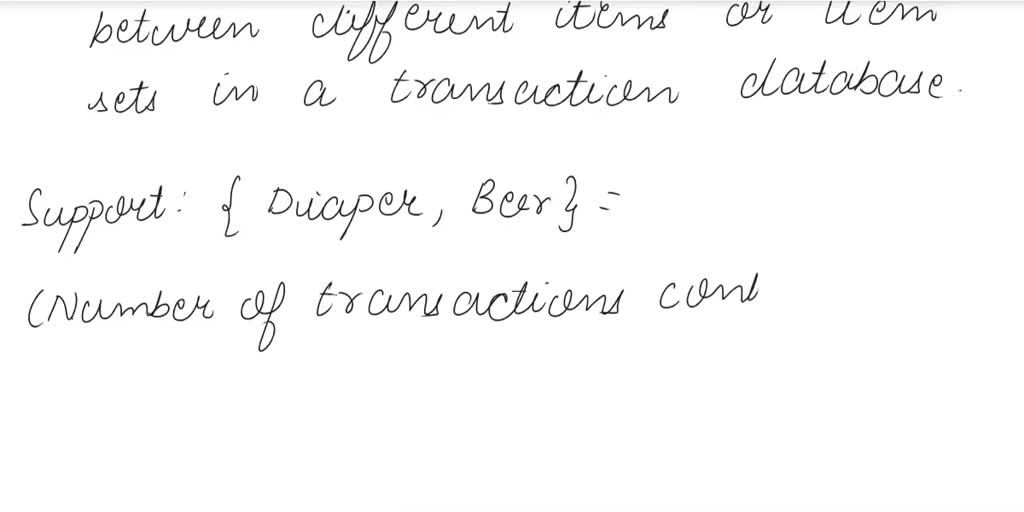 between different items or item
sets in a transaction database.
Support: { Diaper, Beer} =
(Number of transactions cont